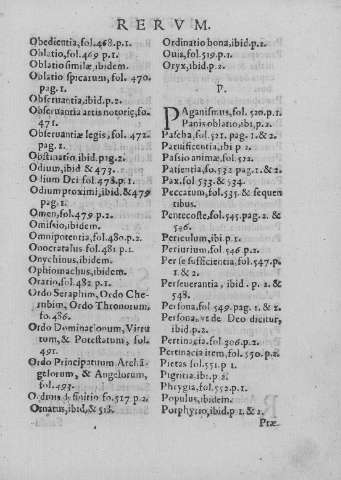 RERVM.
Obedientia, fol.468.p.1.
Oblatio, fol.469 p.1.
Oblatio similæ, ibidem.
Oblatio spicarum, fol. 470.
pag.1.
Obseruantia, ibid p.2.
Obseruantia artis notoriȩ, fo.
471.
Obseruantiæ legis, fol.472.
pag.1.
Obstinatio ibid.pag.2.
Odium, ibid & 473.
Odium Dei fol.478.p.1.
Odium proximi, ibid.&479
pag.1.
Omen, fol.479 p.2.
Omissio, ibidem.
Omnipotentia, fol.480.p.2.
Onocratalus fol.481 p.1.
Onychinus, ibidem.
Ophiomachus, ibidem.
Oratio, fol.482 p.1.
Ordo Seraphim, Ordo Che-
rubim, Ordo Thronorum,
fo.486.
Ordo Dominationum, Virtu
tum, & Potestatum, fol.
491.
Ordo Principatuum Archã-
gelorum, & Angelorum,
fol.493.
Ordinis definitio fo.517 p.2.
Ornatus, ibid, & 518.
Ordinatio bona, ibid p.1.
Ouis, fol.519.p.1.
Oryx, ibid.p 2.
P.
PAganismus, fol.520.p.1.
Panis oblatio, ibi, p.2.
Pascha, fol.521. pag.1.&2.
Paruificentia, ibi p 2.
Passio animæ, fol.522.
Patientia, fo.532 pag.1.&2.
Pax, fol 533. & 534.
Peccatum, fol.535. & sequen
tibus.
Pentecoste, fol.545.pag.2.&
546.
Periculum, ibi p.1.
Periurium, fol.546 p 1.
Per se sufficientia, fol.547.p.
1.&2.
Perseuerantia, ibid. p. 2. &
548.
Persona, fol 549. pag 1.& 2.
Persona, vt de Deo dicitur,
ibid p.2.
Pertinacia, fol 306.p.2.
Pertinacia item, fol.550.p.2.
Pietas fol.551.p 1.
Pigritia ibi p.2.
Phrygia, fol.552.p.1.
Populus, ibidem.
Porphyrio, ibid.p 1.& 2.
Præ-